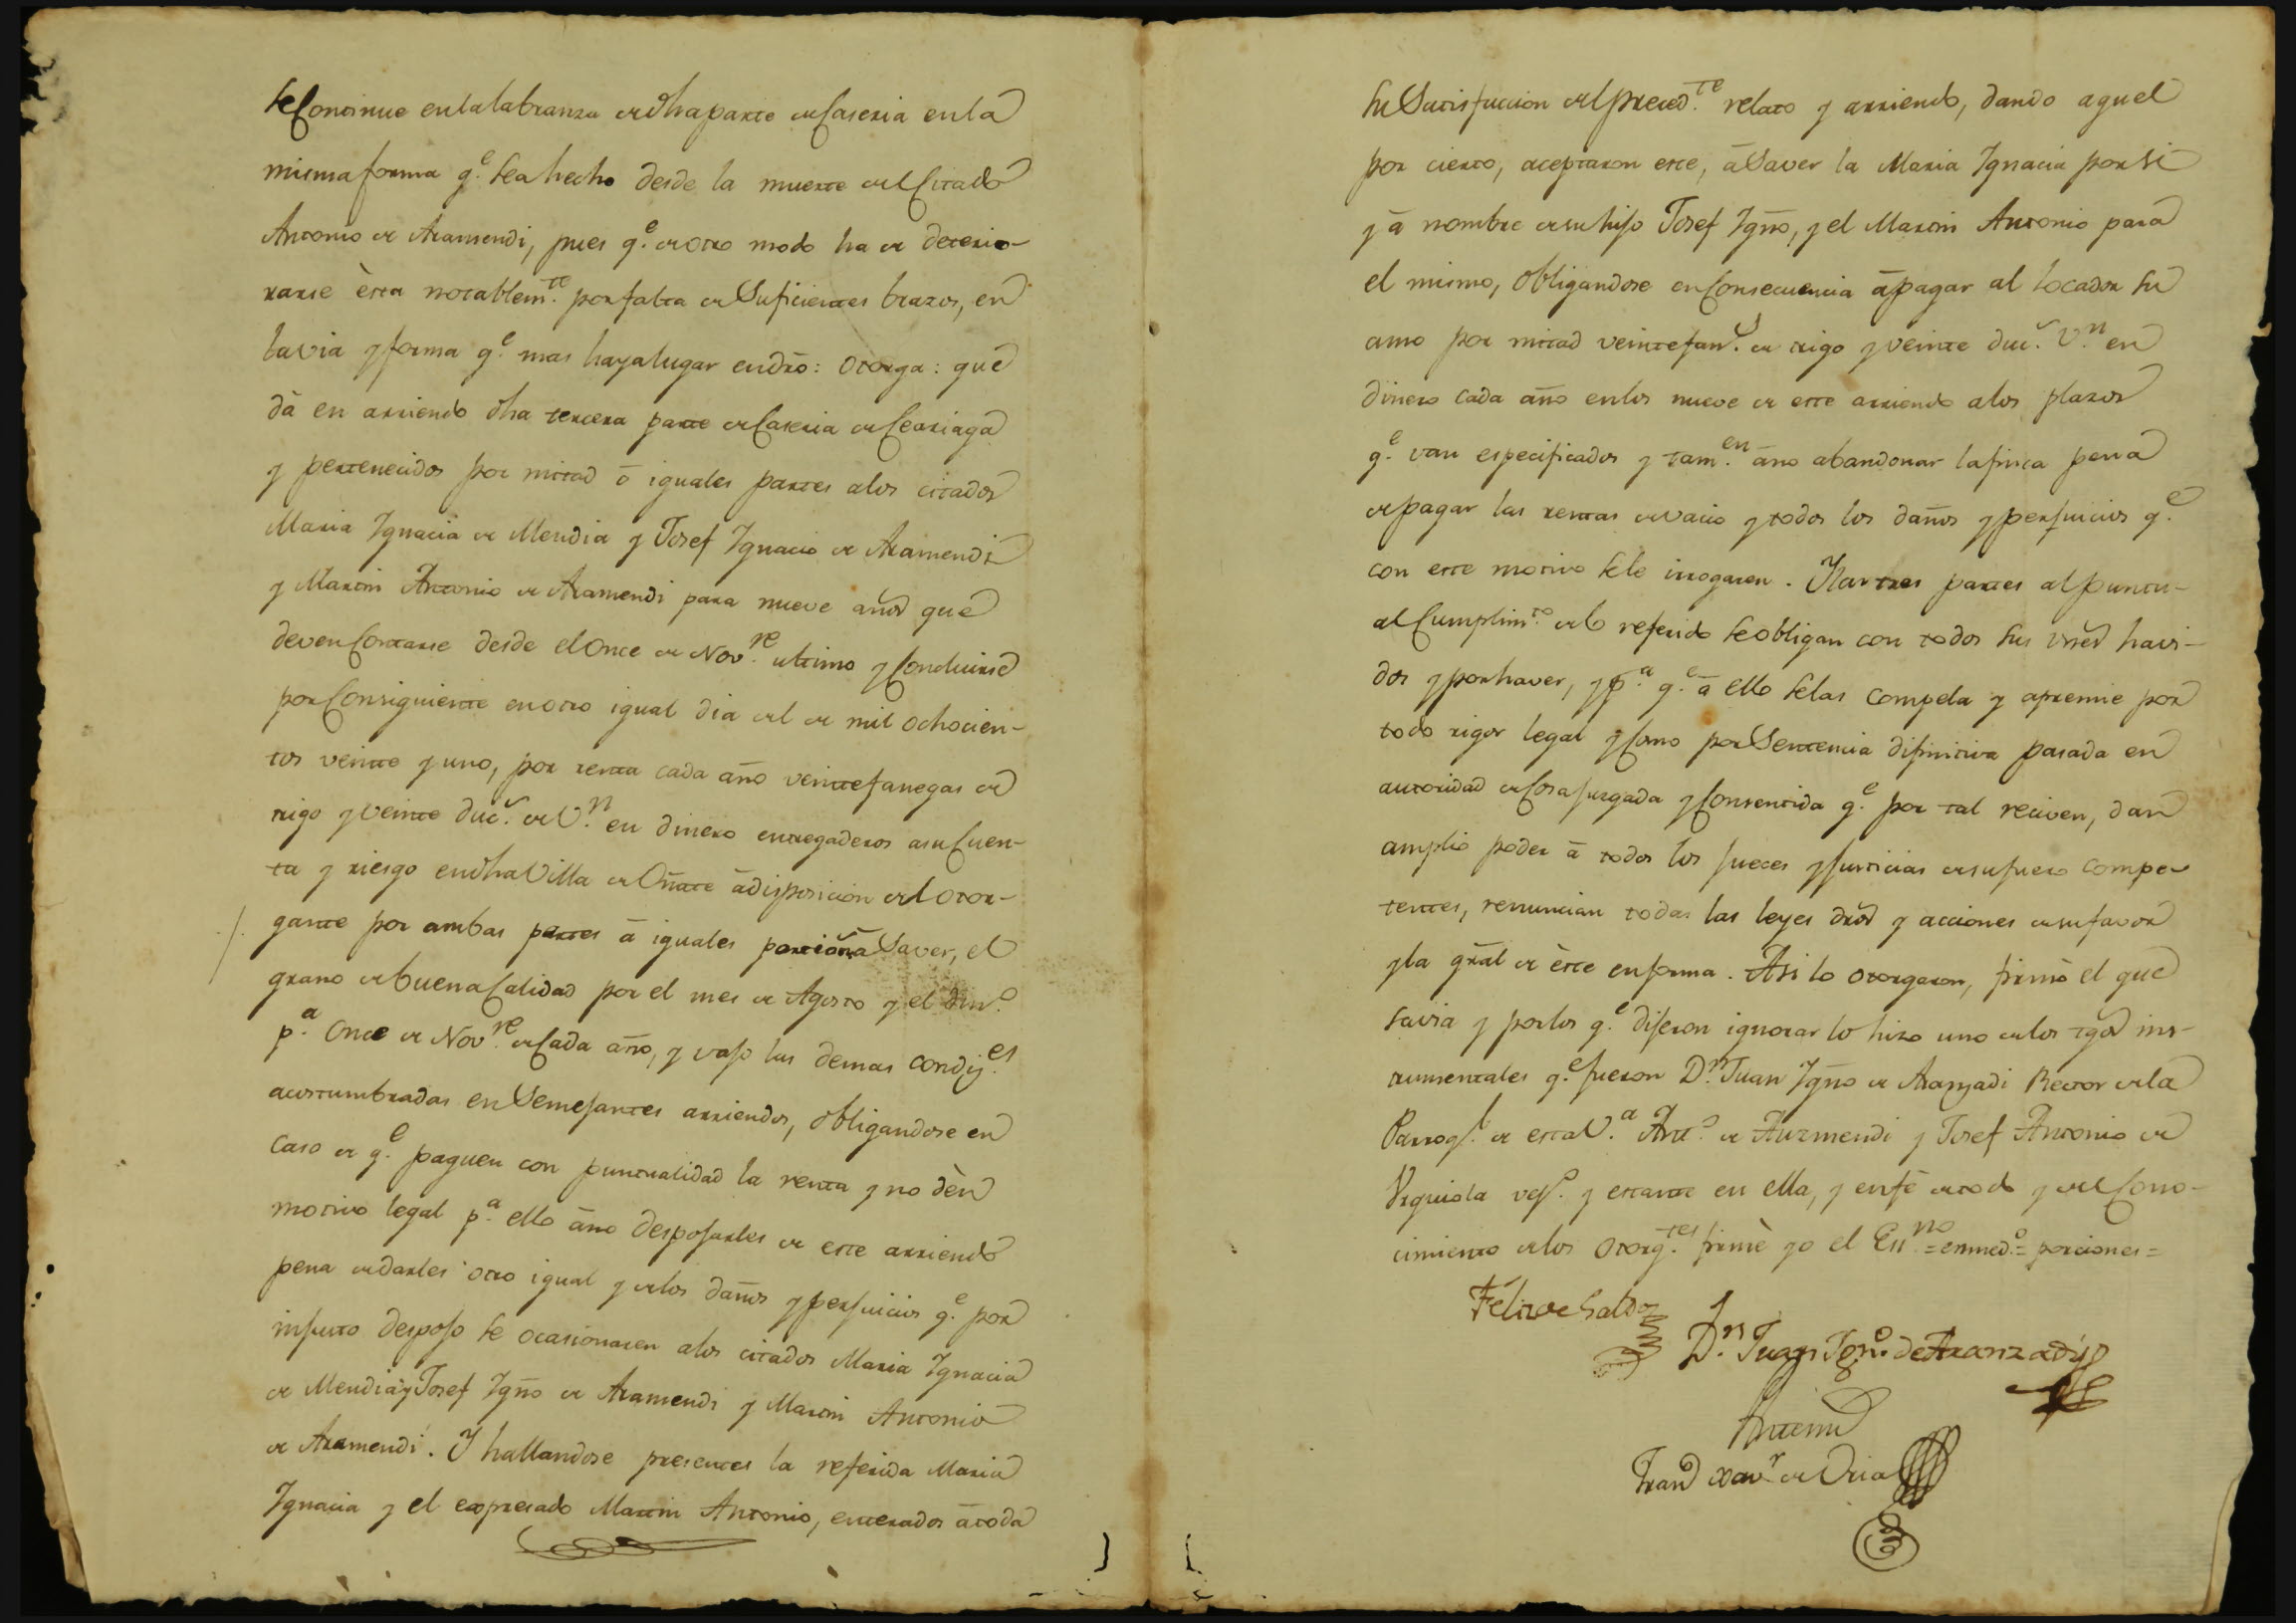 se Continue en la labranza de dha parte de Caseria en la
misma forma q.e se a hecho desde la muerte del Citado
Antonio de Aramendi, pues q.e de otro modo ha de deterio-
rarse èsta notablem.te por falta de Suficientes brazos, en
la via y forma q.e mas haya lugar en dro: otorga: que
dà en arriendo dha tercera parte de Caseria de Leariaga
y pertenecidos por mitad ō iguales partes a los citados
Maria Ignacia de Mendia y Josef Ignacio de Aramendi
y Martin Antonio de Aramendi para nueve años que
deven Contarse desde el Once de Nov.re ultimo y Concluirse
por Consiguiente en otro igual dia del de mil ochocien-
tos veinte y uno, por renta cada año veinte fanegas de
trigo y veinte duc.s de V.n en dinero entregaderos a su Cuen-
ta y riesgo en dha Villa de Oñate ā disposicion del otor-
gante por ambas partes ā iguales porcions ā Saver, el
grano de buena Calidad por el mes de Agosto y el din.o
p.a Once de Nov.re de Cada año, y vajo las demas condiz.es
acostumbradas en Semejantes arriendos, obligandose en
caso de q.e paguen con puntualidad la renta y no dèn
motivo legal p.a ello ā no desposarles de este arriendo
pena de darles otro igual y de los daños y perjuicios q.e por
injusto despojo se ocasionasen a los citados Maria Ignacia
de Mendia y Josef Igño de Aramendi y Martin Antonio
de Aramendi. Y hallandose presentes la referida Maria
Ignacia y el expresado Martin Antonio, enterados ā toda
su Satisfaccion del preced.te relato y arriendo, dando aquel
por cierto, aceptaron este, ā Saver la Maria Ignacia por si
y ā nombre de su hijo Josef Igño, y el Martin Antonio para
el mismo, obligandose en Consecuencia ā pagar al locador su
amo por mitad veinte fan.s de trigo y veinte duc.s V.n en
dinero cada año en los nueve de este arriendo a los plazos
q.e van especificados y tam.en ā no abandonar la finca pena
de pagar las rentas de vacio y todos los daños y perjuicios q.e
con este motivo se le irrogasen. Y las tres partes al puntu-
al Cumplim.to de lo referido se obligan con todos sus vnes havi-
dos y por haver, y p.a q.e ā ello se las compela y apremie por
todo rigor legal y Como por Sentencia difinitiva pasada en
autoridad de Cosa juzgada y Consentida q.e por tal reciven, dan
amplio poder ā todos los jueces y justicias de su fuero compe-
tentes, renuncian todas las leyes dros y acciones de su favor
y la gral de èste en forma. Asi lo otorgaron, firmò el que
savia y por los q.e dijeron ignorar lo hizo uno de los tgos ins-
trumentales q.e fueron D.n Juan Igño de Aranzadi Rector de la
Parroq.l de esta V.a Ant.o de Auzmendi y Josef Antonio de
Urquiola vez.s y estante en ella, y en fè de todo y del Cono-
cimiento de los Otorg.tes firmè yo el Ess.no = enmed.o = porciones =
Felix de Galdoz
D.n Juan Ign.o de Aranzadi
Antemi
Fran.co Xav.r de Oria